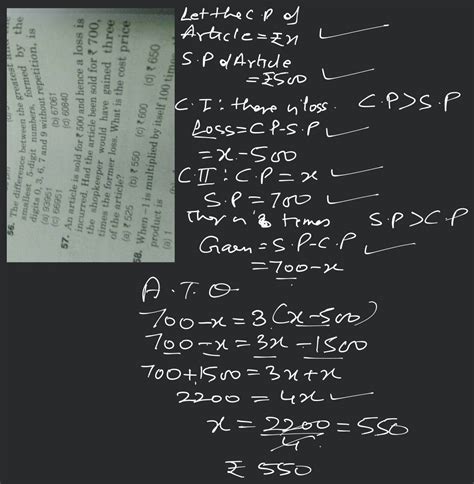 56. The difference between the greatest and the
smallest 5-digit numbers, formed by the
digits 0, 3, 6, 7 and 9 without repetition, is
(a) 93951 (b) 67061
(c) 66951 (d) 60840
57. An article is sold for ₹ 500 and hence a loss is
incurred. Had the article been sold for ₹ 700,
the shopkeeper would have gained three
times the former loss. What is the cost price
of the article?
(a) ₹ 525 (b) ₹ 550 (c) ₹ 600 (d) ₹ 650
58. When −1 is multiplied by itself 100 times
product is
(a) 1
Let the C.P of
Article = ₹x
S.P of Article
= ₹500
C.I : there is loss. C.P>S.P
Loss = C.P-S.P
= x-500
C.II : C.P = x
S.P = 700
times S.P>C.P
Gain = S.P-C.P
= 700-x
A.T.Q
700-x = 3(x-500)
700-x = 3x-1500
700+1500 = 3x+x
2200 = 4x
x = 2200/4 = 550
₹ 550